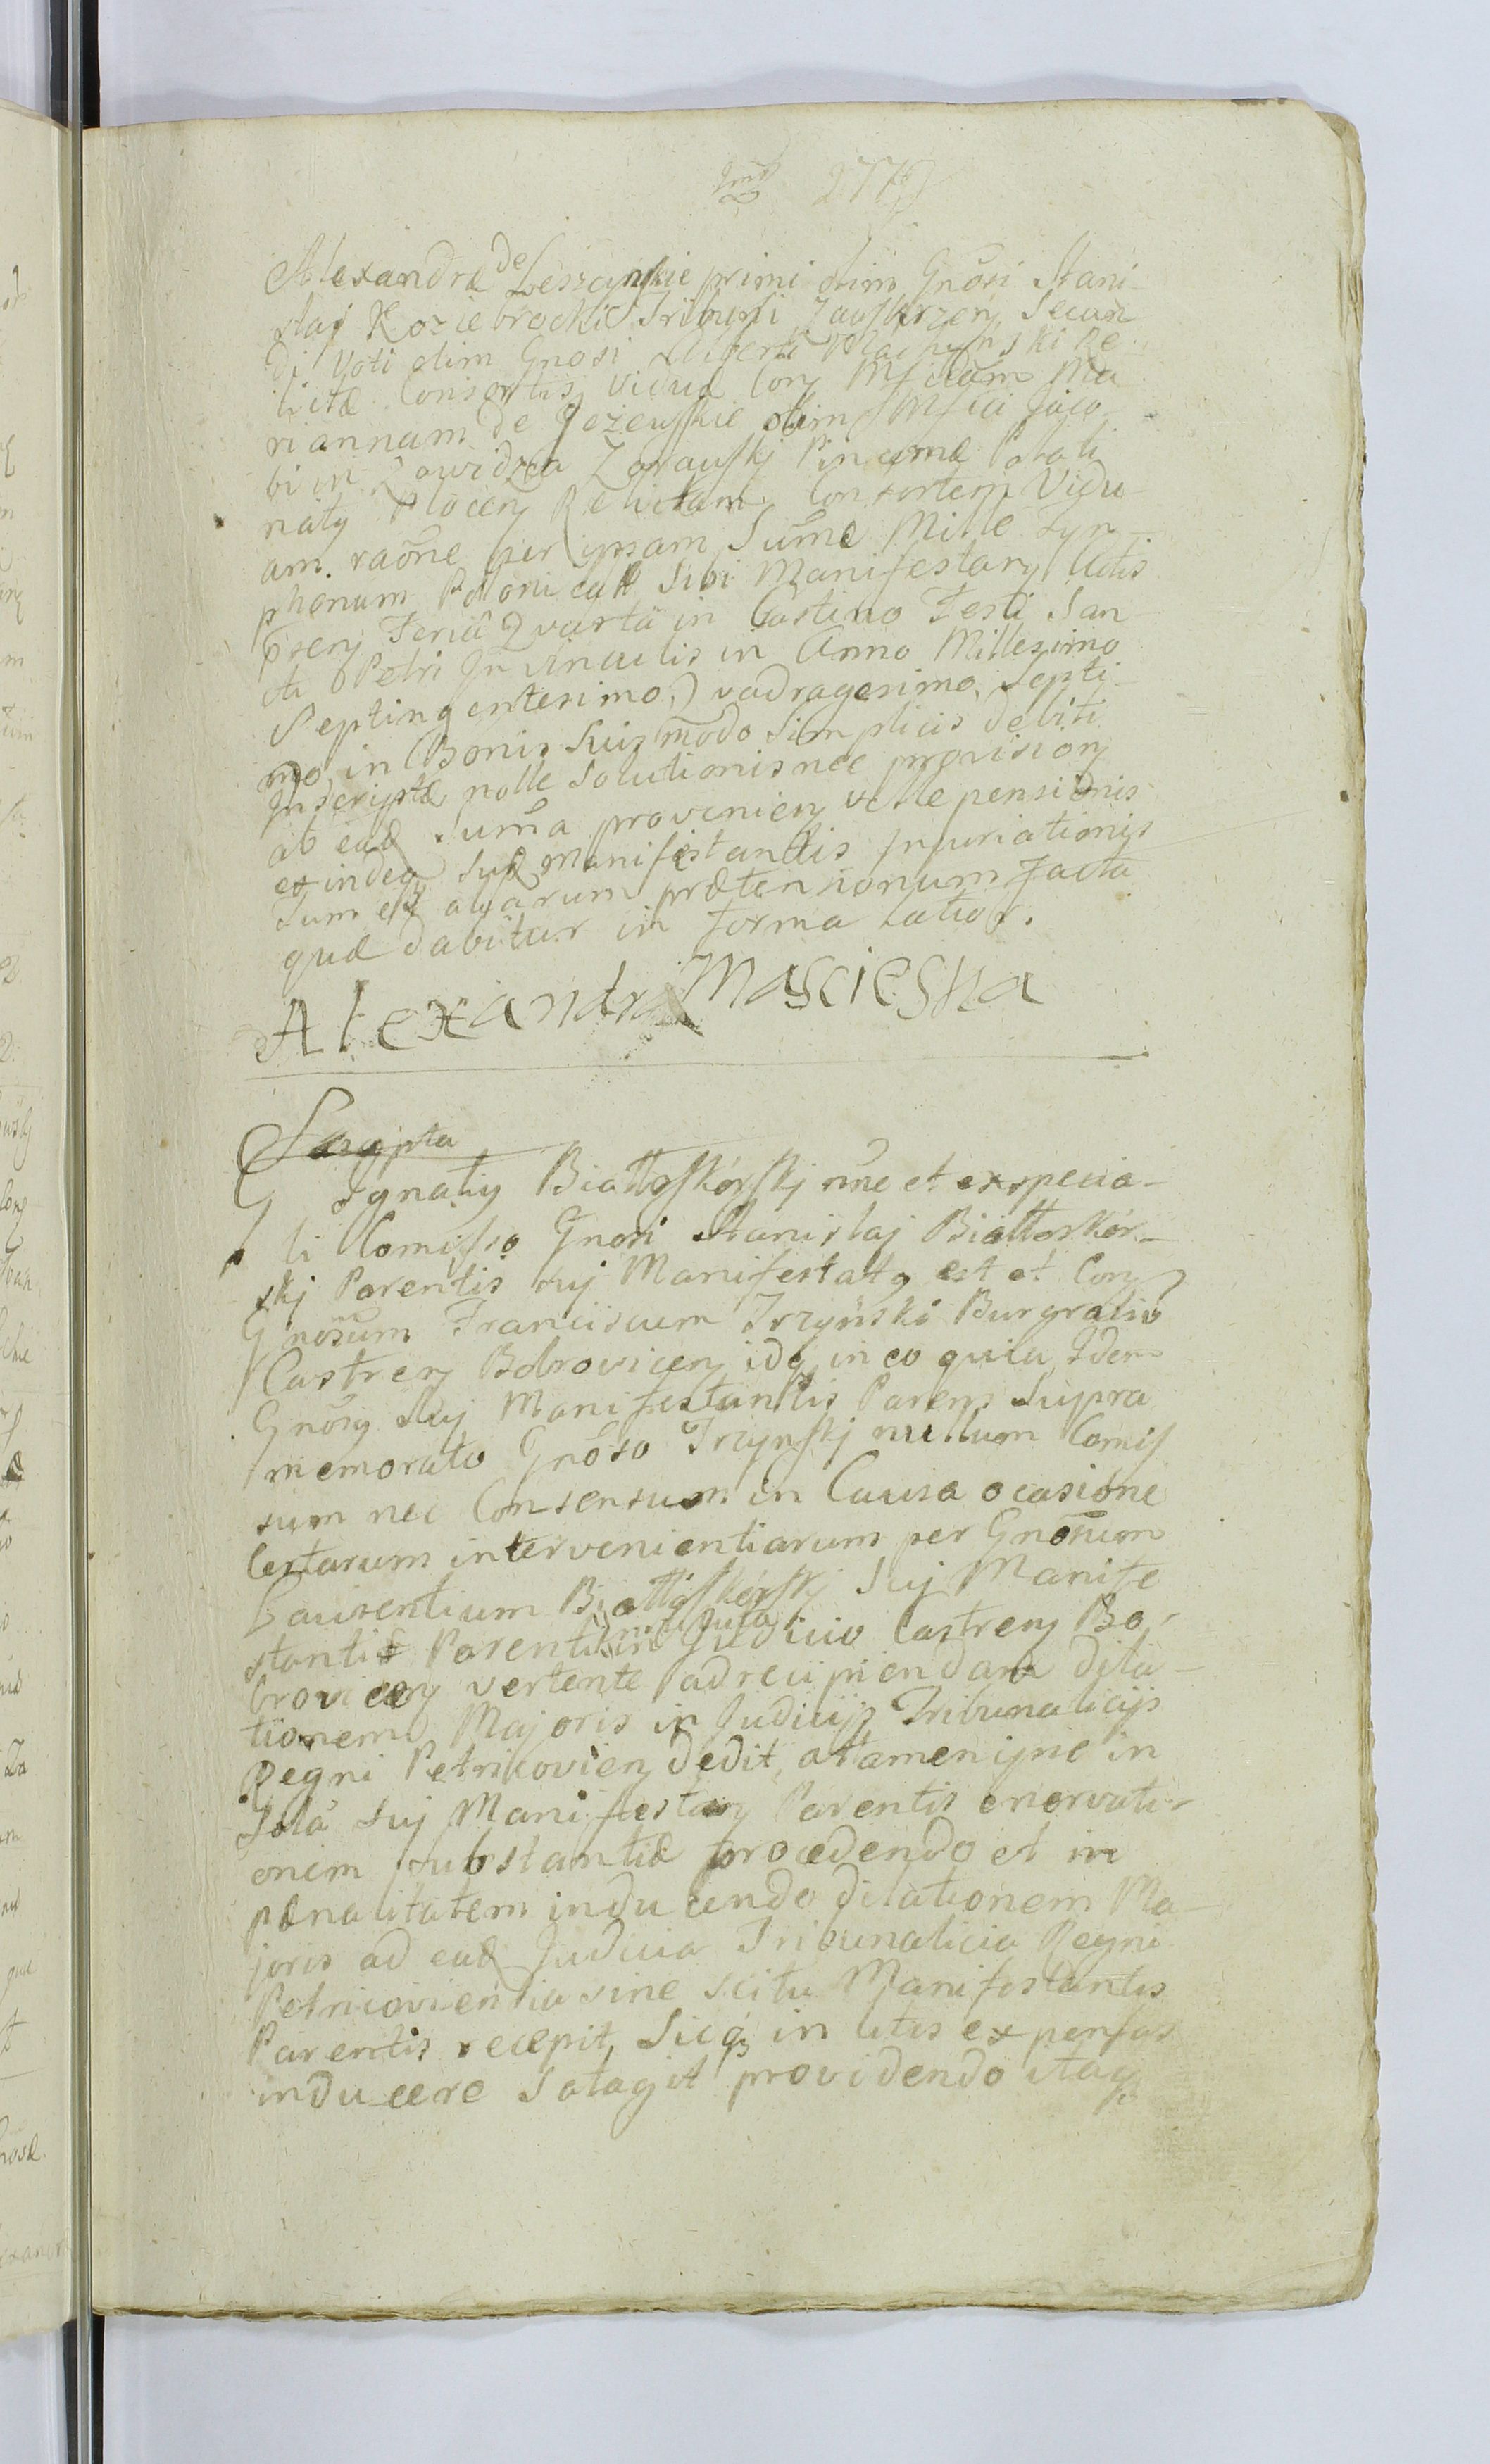 277
Alexandræ de Leszczynskie primi olim Gnősi Stani-
slaj Koziebrocki Tribuni Zawskrzen, Secun
di Voti olim Gnosi Alberti Re
lictæ Consortis, viduæ Con Mficam Ma
riannam de Jeżewskie olim Mfici Jaco
bi in Zawidza Zorawskj Pincernæ Palati
natg Plocen Relictam Consortem Vidu
am. raőne per ipsam Sumæ Mille Tyn-
phonum Polonical Sibi Manifestan Actis
pősen Feria Qvarta in Crastino Festi San
cti Petri In Vinculis in Anno Millesimo
Septingentesimo, Qvadragesimo, Septi-
mo, in Bonis Suis modo simplicis debiti
Inscriptæ nolle solutionis nec provision
ab ead suma provenien velle pensionis
exindeq suæ Manifestantis Injuriationis
Tum et aliarum prætensionum facta
quæ dabitur in forma Latior.
Alexandra Masciesna
Scripta
G Ignatig Białłoskórskj nne et ex specia-
li Comisso Gnosi Stanislaj Białłoskór-
skj Parentis sui Manifestatg est et Con
Gnősum Franciscum Irzyński Burgrabiű
Castren Bobrovicen idq in eo quia Idem
Gnősg Suj Manifestantis Parens Supra
memorato Gnőso Irzynskj nullum Comis
sum nec Consensum in Causa ocasione
certarum intervenientiarum per Gnősum
Laurentium Białłoskórskj Suj Manife
stantis Parentem Judicio Castren Bo-
brovicen vertente ad recipiendam dila-
tionem Majoris in Judicijs Tribunalicijs
Regni Petricovien dedit, attamen ipse in
Sola Suj Manifestan Parentis enervati-
onem substantiæ procedendo et in
pænalitatem inducendo dilationem Ma-
joris ad ead Judicia Tribunalicia Regni
Petricoviensia sine scitu Manifestantis
Parentis recepit, Sicq in litis expensas
inducere Satagit providendo itaq